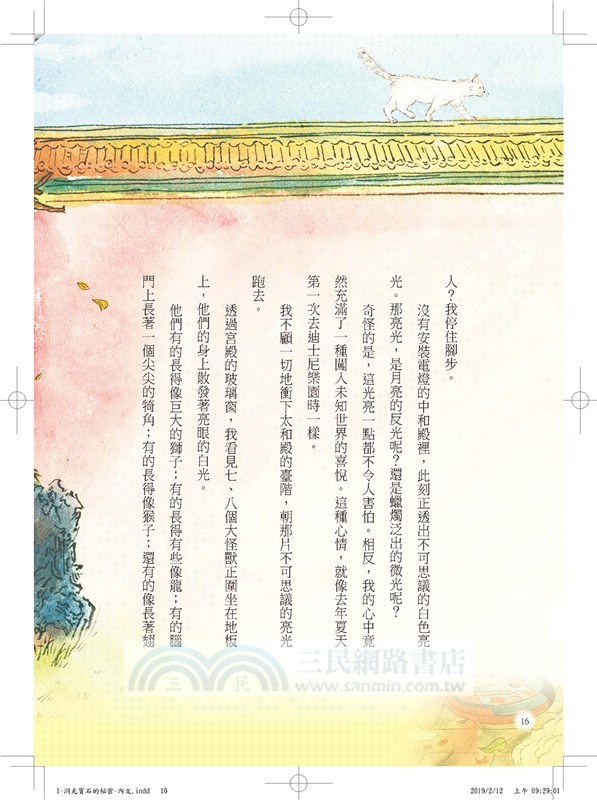 人？我停住腳步。
沒有安裝電燈的中和殿裡，此刻正透出不可思議的白色亮
光。那亮光，是月亮的反光呢？還是蠟燭泛出的微光呢？
奇怪的是，這光亮一點都不令人害怕。相反，我的心中竟
然充滿了一種闖入未知世界的喜悅。這種心情，就像去年夏天
第一次去迪士尼樂園時一樣。
我不顧一切地衝下太和殿的臺階，朝那片不可思議的亮光
跑去。
透過宮殿的玻璃窗，我看見七、八個大怪獸正圍坐在地板
上，他們的身上散發著亮眼的白光。
他們有的長得像巨大的獅子；有的長得有些像龍；有的腦
門上長著一個尖尖的犄角；有的長得像猴子；還有的像長著翅
三民網路書店
三 民
www.sanmin.com.tw
16
1-洞光寶石的祕密-內文.indd 16
2019/2/12 上午 09:29:01